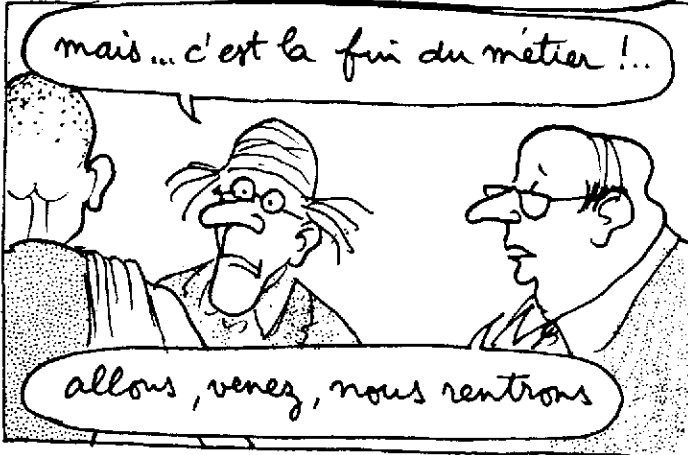 mais... c'est la fin du métier !..
allons, venez, nous rentrons